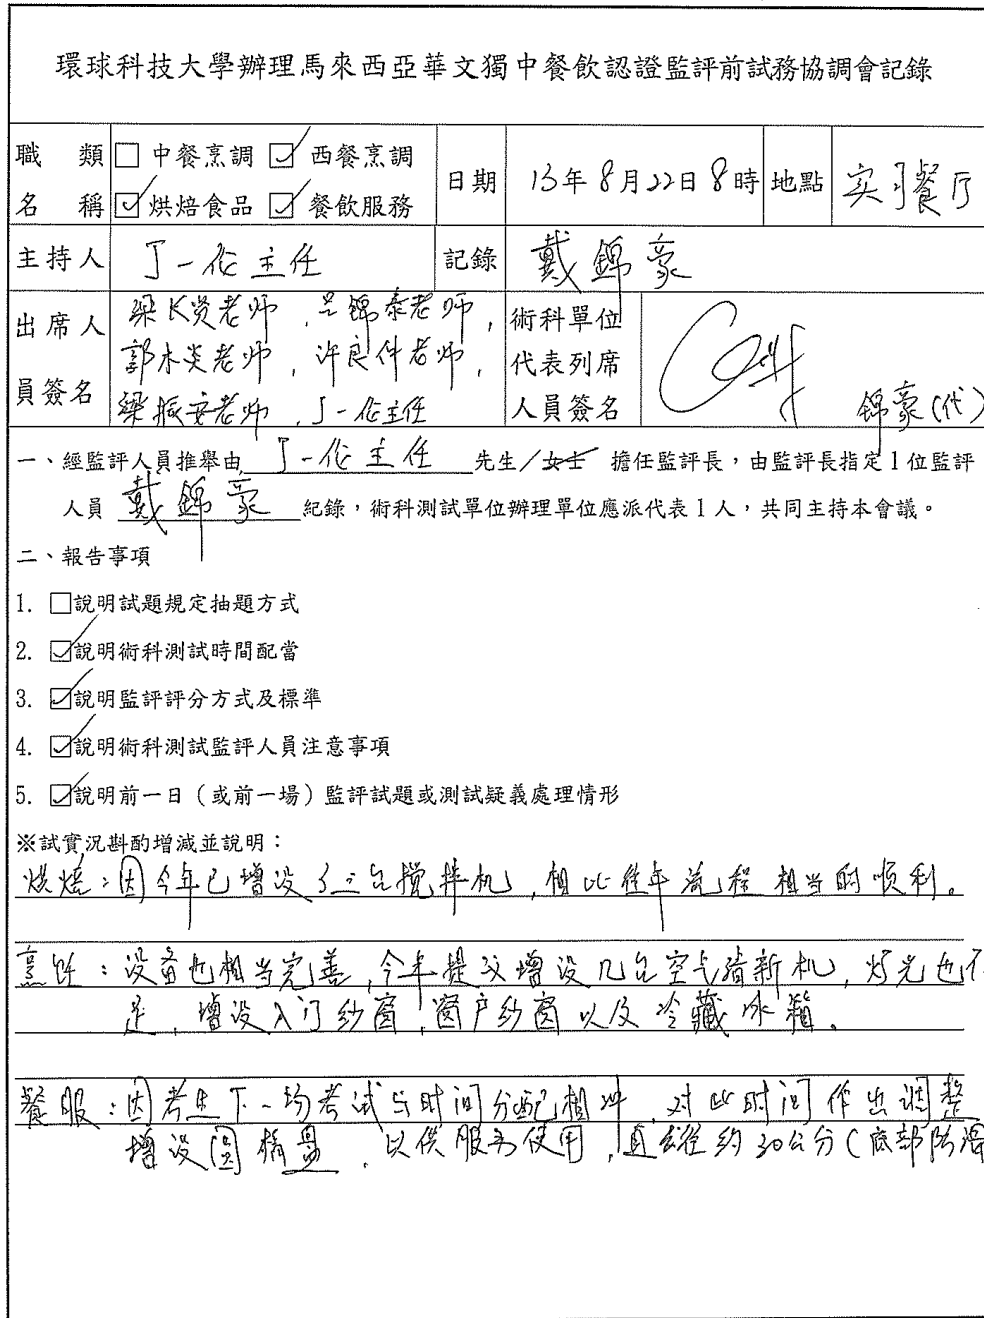 環球科技大學辦理馬來西亞華文獨中餐飲認證監評前試務協調會記錄
職類名稱 □中餐烹調 ☑西餐烹調
☑烘焙食品 ☑餐飲服務
日期 13年8月22日8時 地點 实习餐厅
主持人 丁一伦主任 記錄 戴錦豪
出席人員簽名
梁长贤老师,吕錦泰老师,
郭木炎老师,许良件老师,
梁振安老师,丁一伦主任
術科單位代表列席人員簽名
錦豪(代)
一、經監評人員推舉由 丁一伦主任 先生/女士 擔任監評長,由監評長指定1位監評
人員 戴錦豪 紀錄,術科測試單位辦理單位應派代表1人,共同主持本會議。
二、報告事項
1. □說明試題規定抽題方式
2. ☑說明術科測試時間配當
3. ☑說明監評評分方式及標準
4. ☑說明術科測試監評人員注意事項
5. ☑說明前一日(或前一場)監評試題或測試疑義處理情形
※試實況斟酌增減並說明:
烘焙:因今年已增设了三台搅拌机,相比往年流程相当的顺利。
烹饪:设备也相当完善,今年提议增设几台空气清新机,灯光也不
足,增设入门纱窗,窗户纱窗以及冷藏冰箱。
餐服:因考生下一场考试与时间分配相冲,对此时间作出调整
增设圆 盘,以供服务使用,直径约30公分(底部防滑